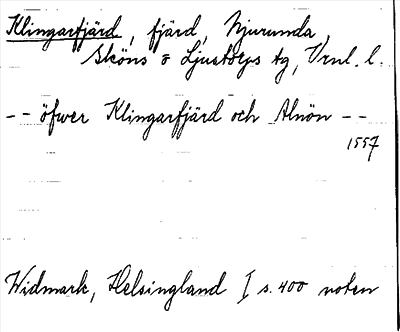 Klingarfjärd, fjärd, Njurunda,
Sköns o Ljustorps tg, Vrnl. l.
-- öfwer Klingarfjärd och Alnön --
1557
Widmark, Helsingland I s. 400 noten